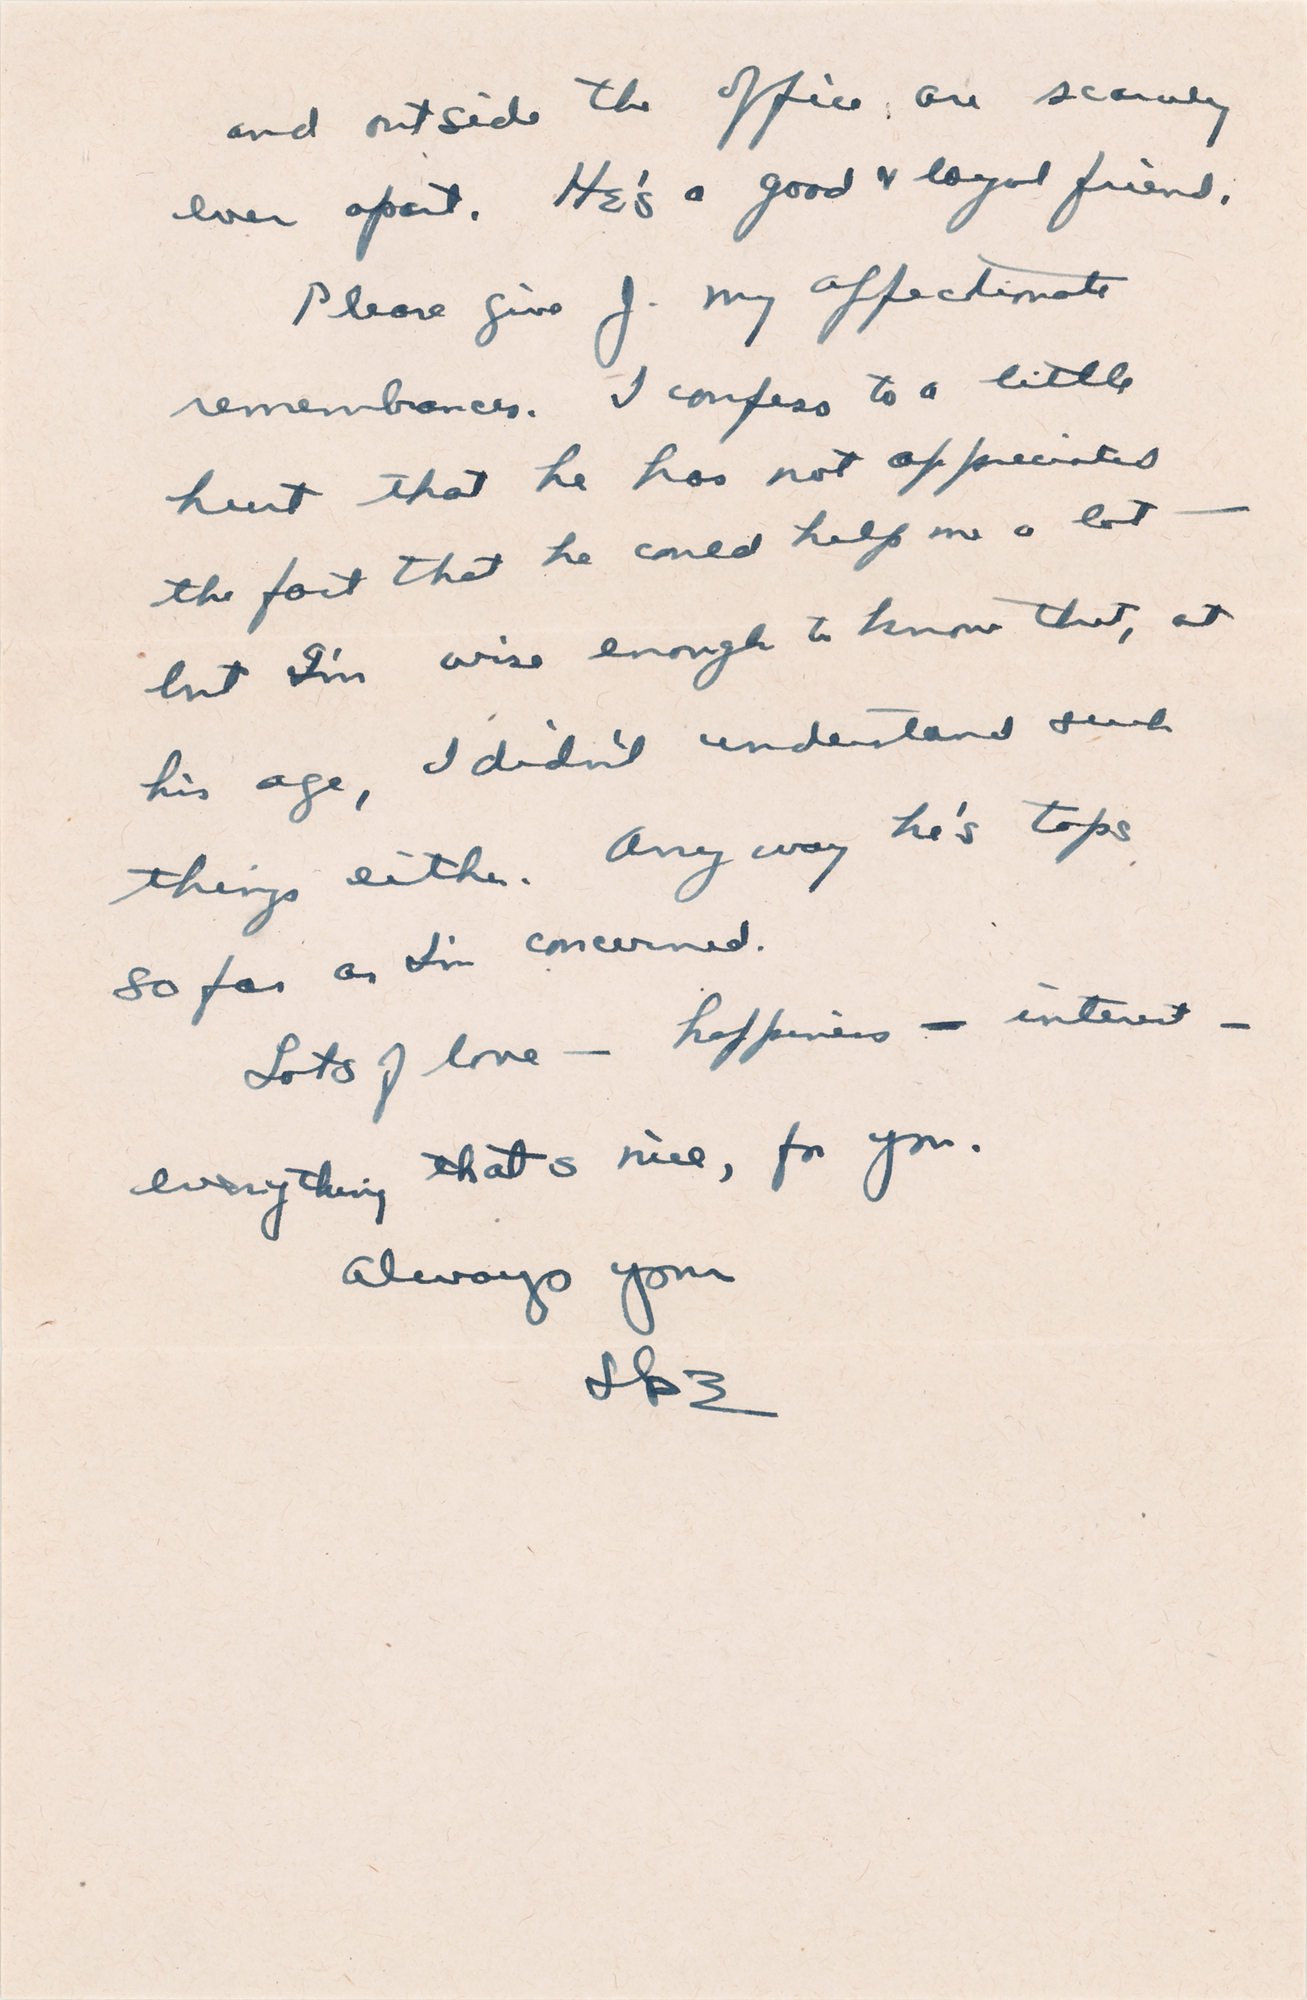 and outside the office, are scarcely
ever apart. He's a good & loyal friend.
Please give J. my affectionate
remembrances. I confess to a little
hurt that he has not appreciated
the fact that he could help me a lot —
but I'm wise enough to know that, at
his age, I didn't understand such
things either. Any way he's tops
so far as I'm concerned.
Lots of love — happiness — interest —
everything that's nice, for you.
Always your
Ike